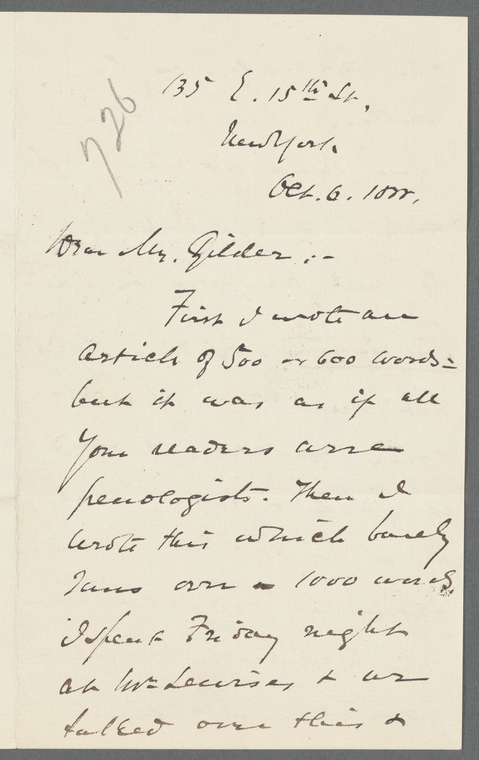 726
135 E. 15th St.
New York.
Oct. 6. 1888.
Dear Mr. Gilder :-
First I wrote an
article of 500 or 600 words -
but it was as if all
your readers were
penologists. Then I
wrote this which barely
runs over a 1000 words.
I spent Friday night
at Mr. & we
talked over this &